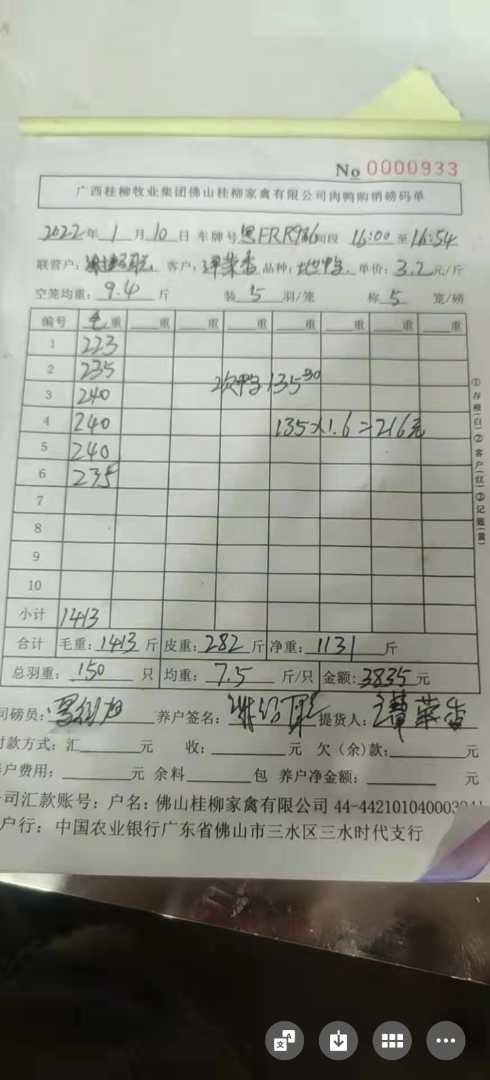 No 0000933
广西桂柳牧业集团佛山桂柳家禽有限公司肉鸭购销磅码单
2022年 1 月 10 日 车牌号 FRR986 时段 16:00 至 16:54
联营户: 客户: 谭荣杏 品种: 单价: 3.2 元/斤
空笼均重: 9.4 斤 装 5 羽/笼 称 5 笼/磅
编号 毛重 重 重 重 重 重 重
1 223
2 235
3 240 次鸭 135
4 240 135×1.6=216元
5 240
6 235
7
8
9
10
小计 1413
合计 毛重: 1413 斤 皮重: 282 斤 净重: 1131 斤
总羽重: 150 只 均重: 7.5 斤/只 金额: 3835 元
司磅员: 养户签名: 提货人: 谭荣杏
付款方式: 汇 元 收: 元 欠(余)款: 元
户费用: 元 余料 包 养户净金额: 元
司汇款账号: 户名: 佛山桂柳家禽有限公司 44-442101040003
户行: 中国农业银行广东省佛山市三水区三水时代支行
①存根(白)②客户(红)③记账(黄)